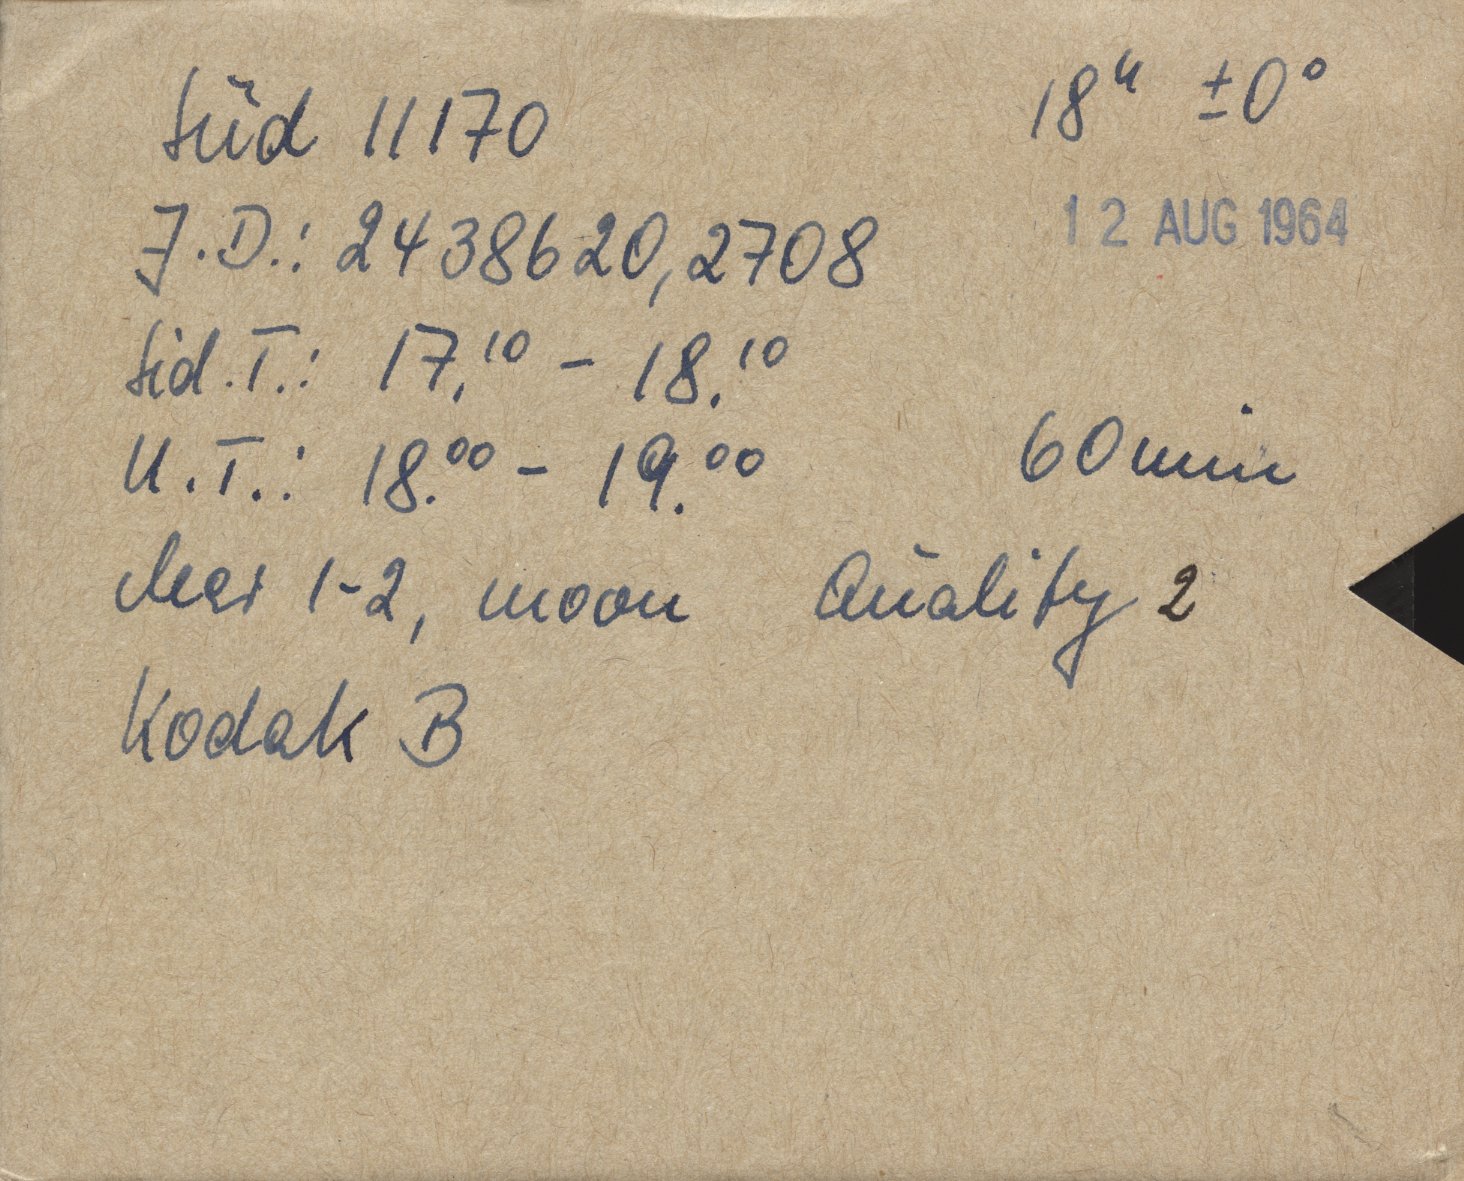 Süd 11170 18ʰ ±0°
12 AUG 1964
J.D.: 2438620,2708
Sid.T.: 17.¹⁰ - 18.¹⁰
U.T.: 18.⁰⁰ - 19.⁰⁰ 60min
clear 1-2, moon Quality 2
Kodak B